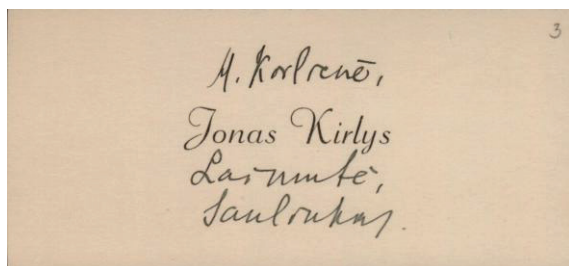 3
M. Kirlienė,
Jonas Kirlys
Laimutė,
Sauliukas.